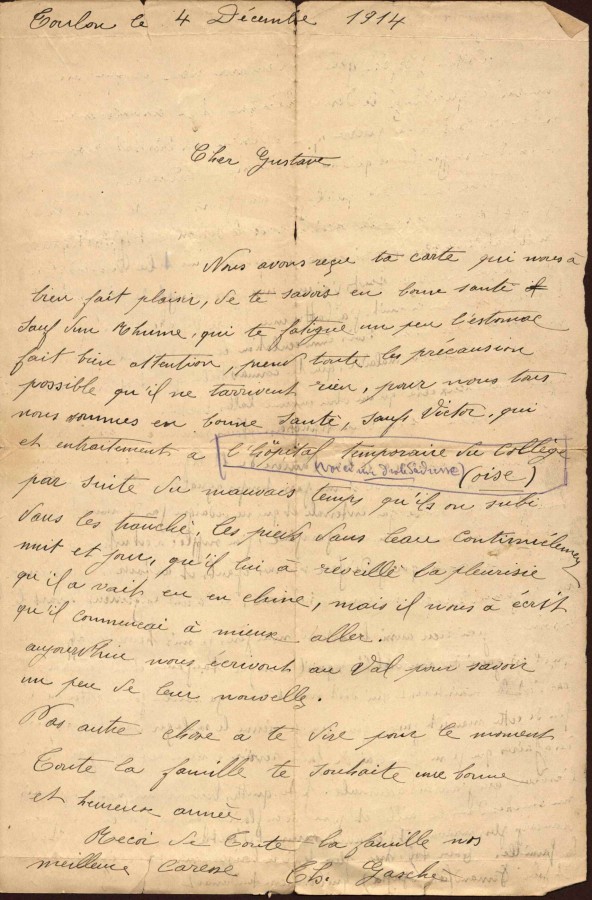 Toulon le 4 Décembre 1914
Cher Gustave
Nous avons reçie ta carte qui nous à
bien fait plaisir, de te savois en bonne santé
sauf d'un Rhume, qui te fatigue un peu l'estomac
fait bien attention, prend toute les précausion
possible qu'il ne t'arrivent rien, pour nous tous
nous sommes en bonne santé, sauf Victor, qui
et entraitement à l'hôpital temporaire du Collège
(oise)
par suite du mauvais temp qu'ils on subi
dans les tranché, les pieds dans leau continuélement
nuit et jour, qu'il lui à réveillé la pleurisie
qu'il a vait eu en chine, mais il nous à écrit
qu'il commencai à mieux aller.
aujourd'hui nous écrivont au Val pour savoir
un peu de leur nouvelles.
Pas autre chose à te dire pour le moment
Toute la famille te souhaite une bonne
et heureuse année
Recoi de Toute la famille nos
meilleure Caresse Ch. Gasché